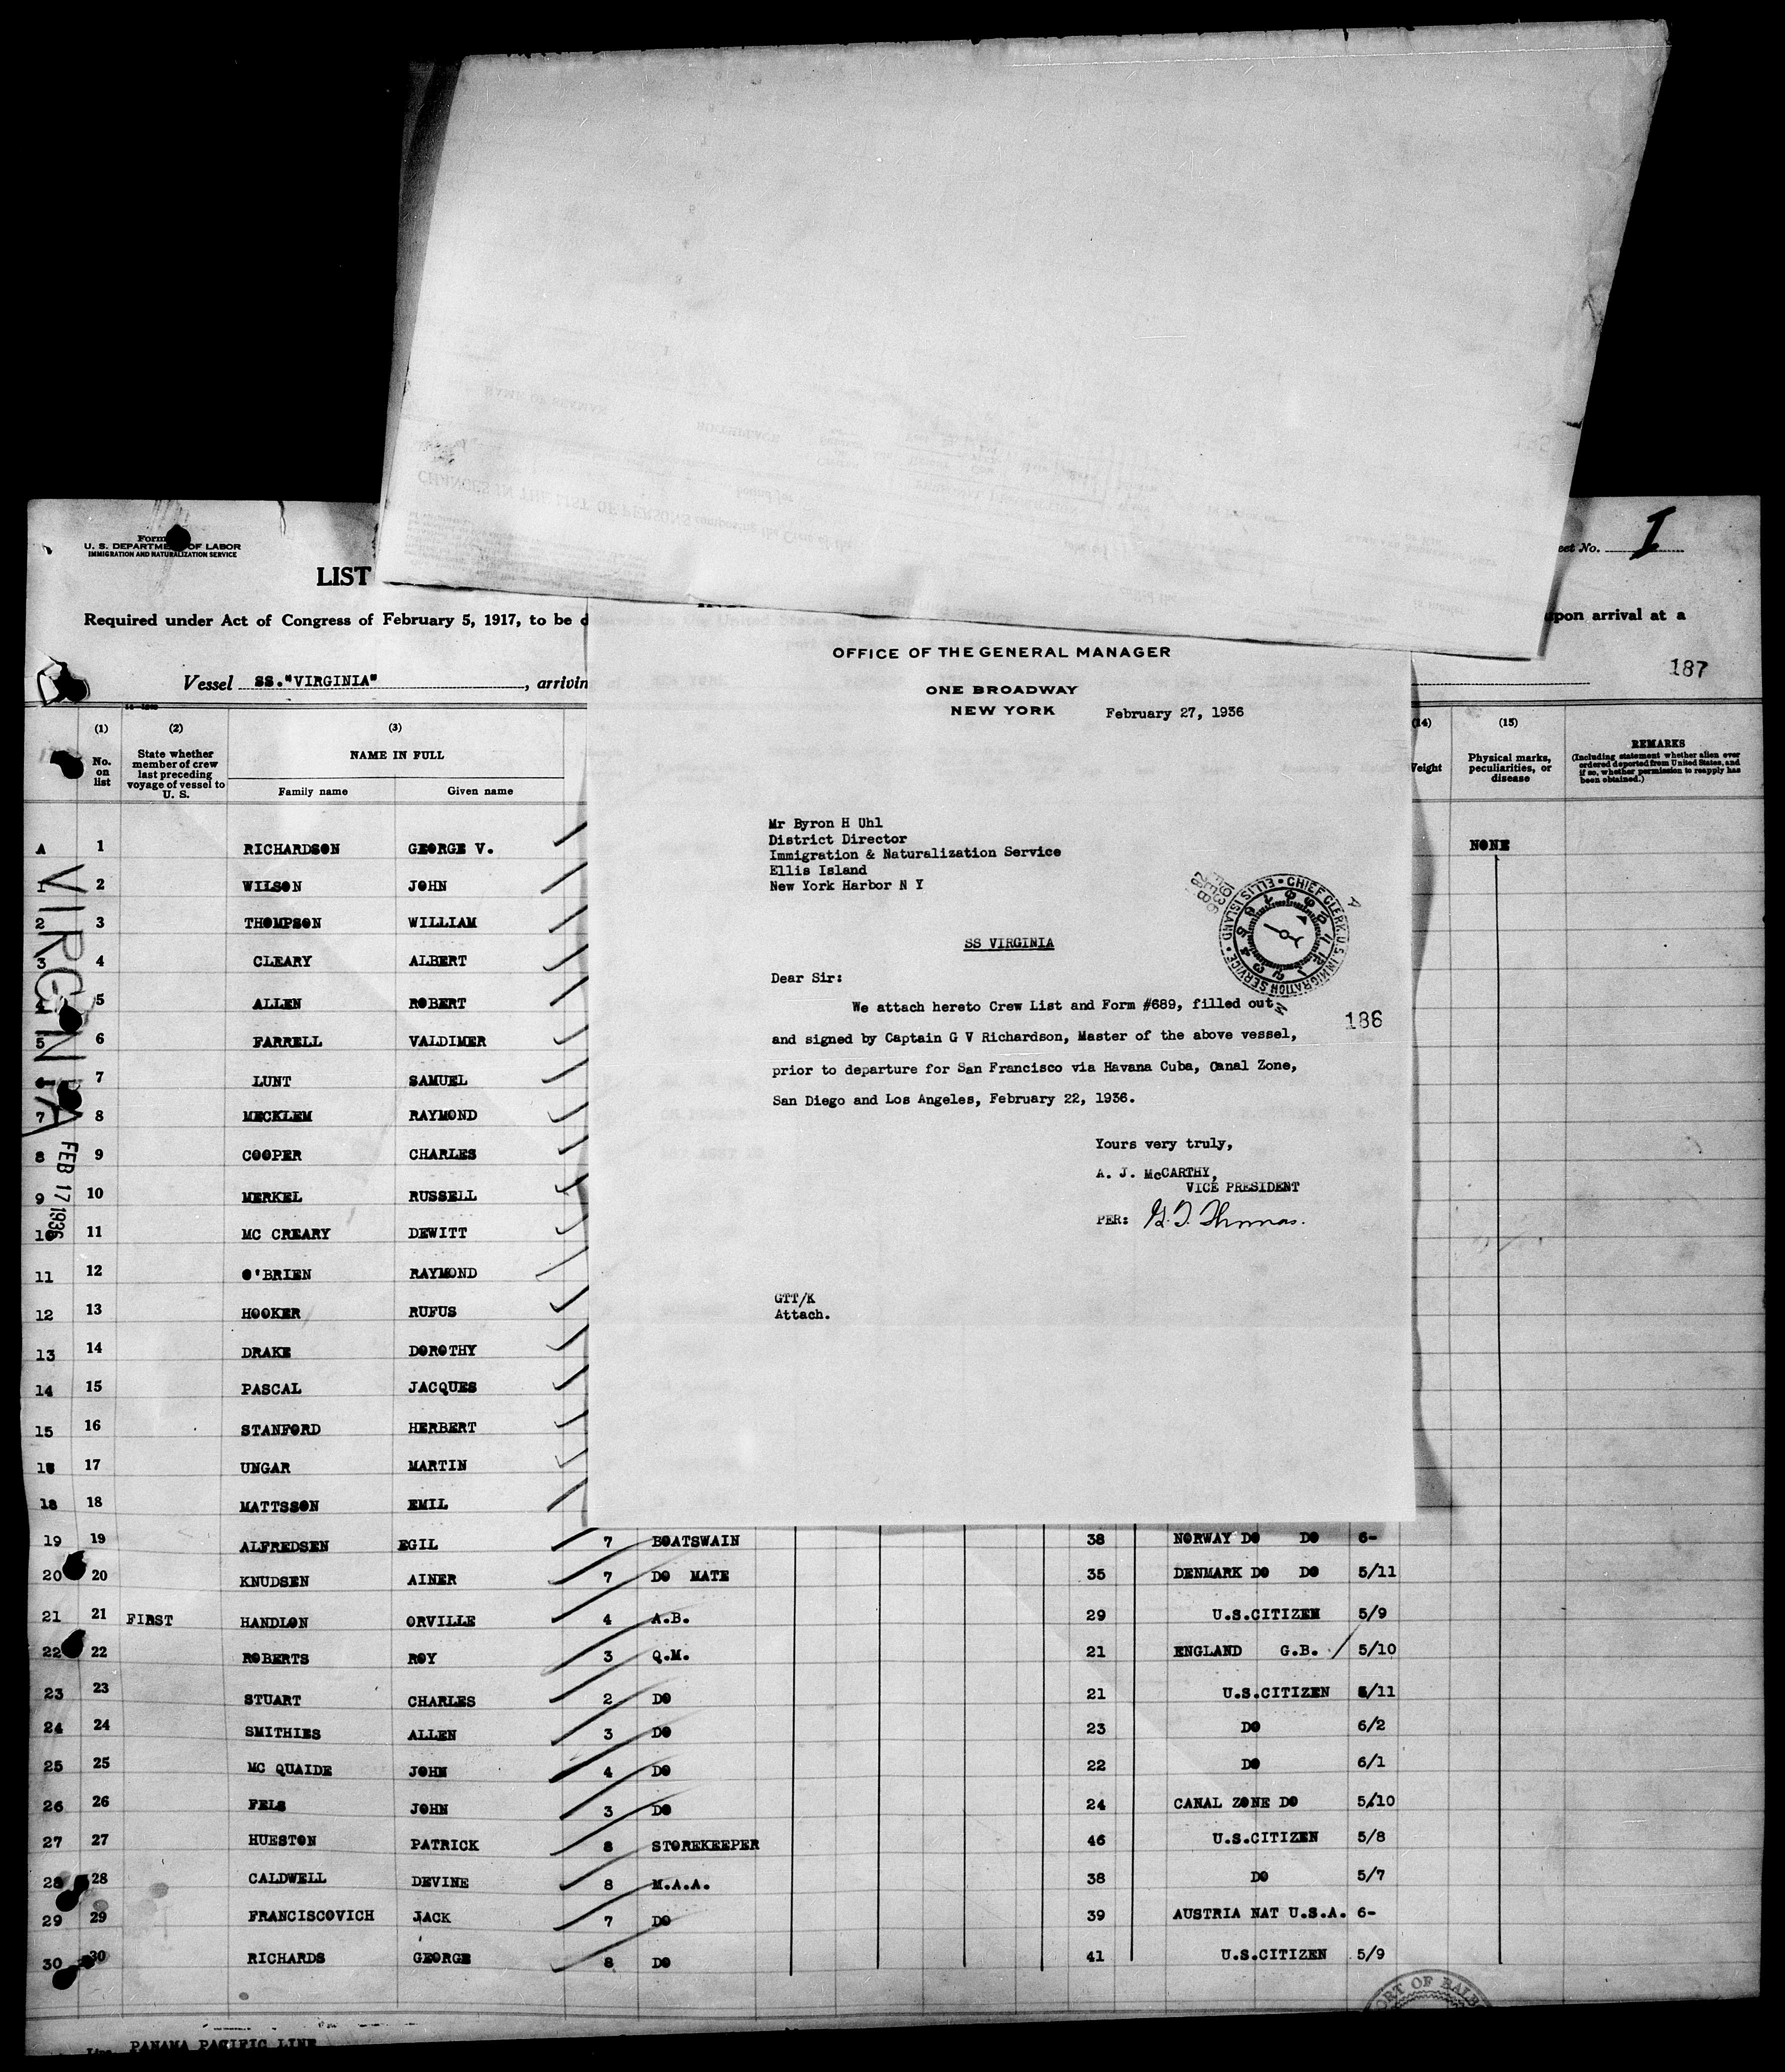 CHANGES IN THE LIST OF PERSONS
NAME OF SEAMAN
BIRTHPLACE
U. S. DEPARTMENT OF LABOR
IMMIGRATION AND NATURALIZATION SERVICE
Sheet No. I
LIST
Required under Act of Congress of February 5, 1917, to be d
upon arrival at a
187
Vessel SS."VIRGINIA", arrivin
(1) (2) (3) (14) (15)
No. on list
State whether member of crew last preceding voyage of vessel to U. S.
NAME IN FULL
Family name Given name
Weight
Physical marks, peculiarities, or disease
REMARKS
(Including statement whether alien ever ordered deported from United States, and if so, whether permission to reapply has been obtained.)
VIRGINIA
FEB 17 1936
A 1 RICHARDSON GEORGE V. NONE
1 2 WILSON JOHN
2 3 THOMPSON WILLIAM
3 4 CLEARY ALBERT
4 5 ALLEN ROBERT
5 6 FARRELL VALDIMER
6 7 LUNT SAMUEL
7 8 MECKLEM RAYMOND
8 9 COOPER CHARLES
9 10 MERKEL RUSSELL
10 11 MC CREARY DEWITT
11 12 O'BRIEN RAYMOND
12 13 HOOKER RUFUS
13 14 DRAKE DOROTHY
14 15 PASCAL JACQUES
15 16 STANFORD HERBERT
16 17 UNGAR MARTIN
18 18 MATTSSON EMIL
19 19 ALFREDSEN EGIL 7 BOATSWAIN 38 NORWAY DO DO 6-
20 20 KNUDSEN AINER 7 DO MATE 35 DENMARK DO DO 5/11
21 21 FIRST HANDLON ORVILLE 4 A.B. 29 U.S.CITIZEN 5/9
22 22 ROBERTS ROY 3 Q.M. 21 ENGLAND G.B. 5/10
23 23 STUART CHARLES 2 DO 21 U.S.CITIZEN 5/11
24 24 SMITHIES ALLEN 3 DO 23 DO 6/2
25 25 MC QUAIDE JOHN 4 DO 22 DO 6/1
26 26 FELS JOHN 3 DO 24 CANAL ZONE DO 5/10
27 27 HUESTON PATRICK 8 STOREKEEPER 46 U.S.CITIZEN 5/8
28 28 CALDWELL DEVINE 8 M.A.A. 38 DO 5/7
29 29 FRANCISCOVICH JACK 7 DO 39 AUSTRIA NAT U.S.A. 6-
30 30 RICHARDS GEORGE 8 DO 41 U.S.CITIZEN 5/9
PORT OF BALB
Line PANAMA PACIFIC LINE
OFFICE OF THE GENERAL MANAGER
ONE BROADWAY
NEW YORK February 27, 1936
Mr Byron H Uhl
District Director
Immigration & Naturalization Service
Ellis Island
New York Harbor N Y
CHIEF CLERK U.S. IMMIGRATION SERVICE • ELLIS ISLAND
SS VIRGINIA
Dear Sir:
We attach hereto Crew List and Form #689, filled out
186
and signed by Captain G V Richardson, Master of the above vessel,
prior to departure for San Francisco via Havana Cuba, Canal Zone,
San Diego and Los Angeles, February 22, 1936.
Yours very truly,
A. J. McCARTHY,
VICE PRESIDENT
PER: G. T. Thomas.
GTT/K
Attach.